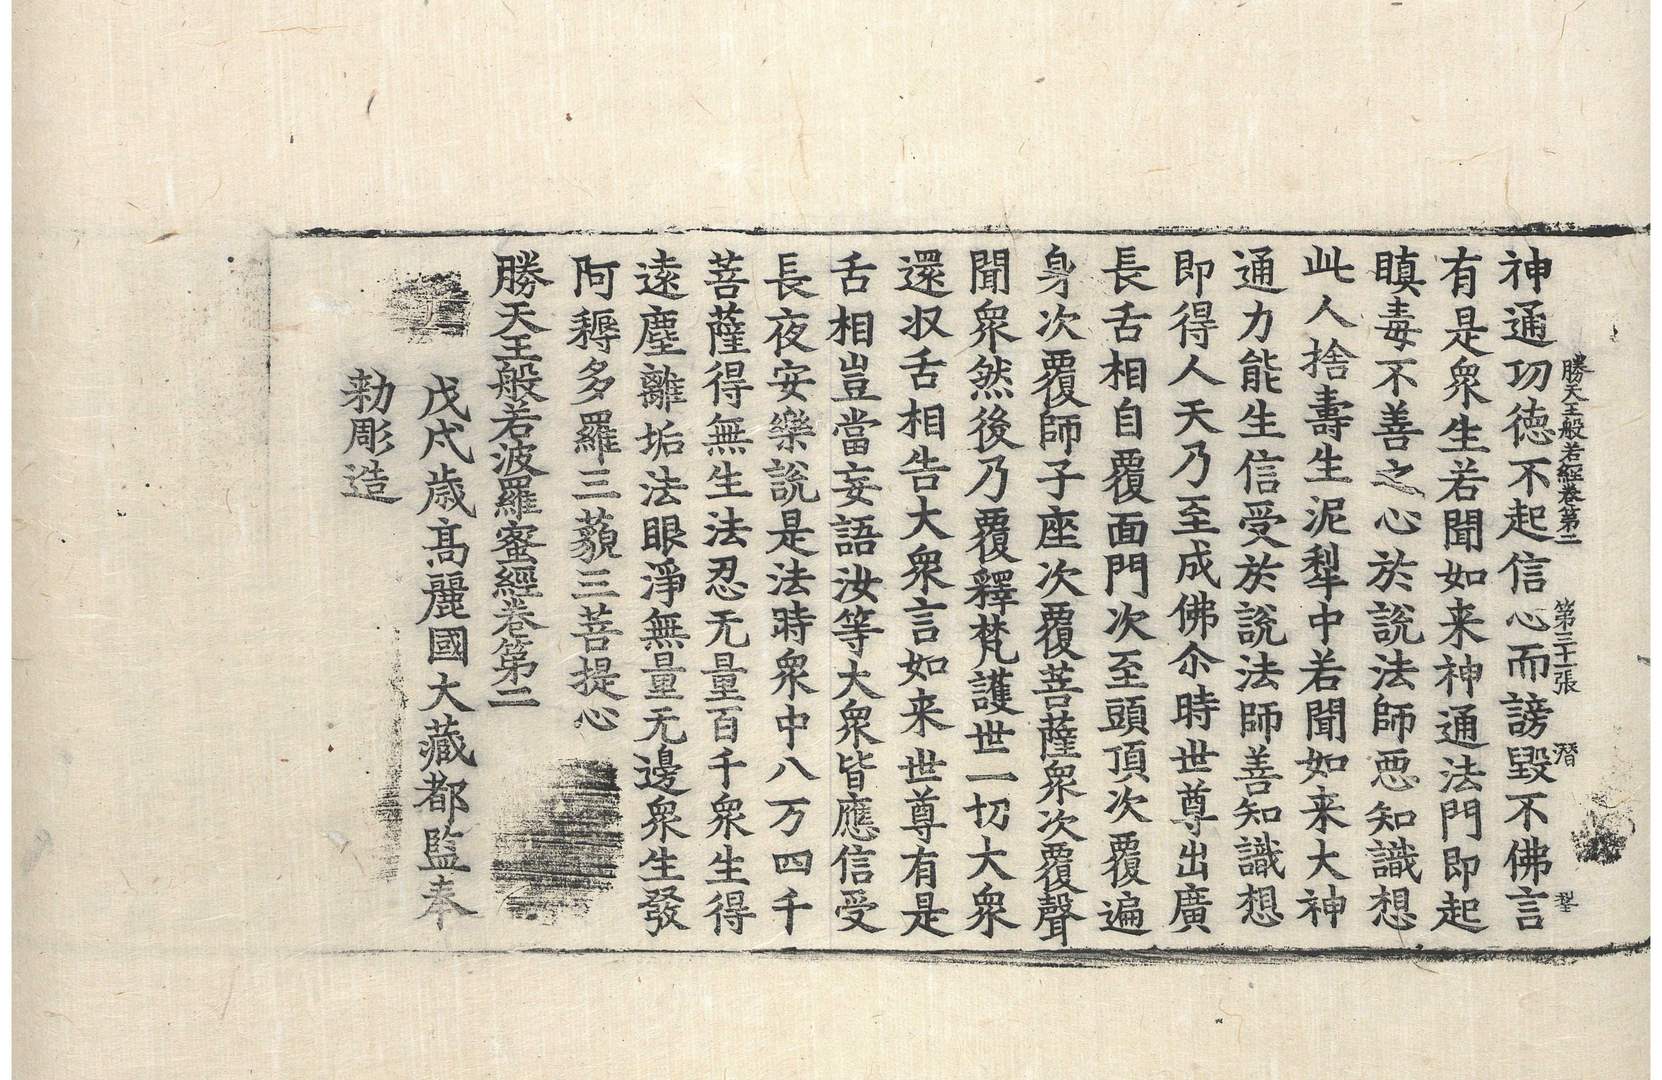 勝天王般若經卷第二 第三十一張 潛
神通功德不起信心而謗毀不佛言
有是衆生若聞如来神通法門即起
瞋毒不善之心於說法師惡知識想
此人捨壽生泥犁中若聞如来大神
通力能生信受於說法師善知識想
即得人天乃至成佛尒時世尊出廣
長舌相自覆面門次至頭頂次覆遍
身次覆師子座次覆菩薩衆次覆聲
聞衆然後乃覆釋梵護世一切大衆
還収舌相告大衆言如来世尊有是
舌相豈當妄語汝等大衆皆應信受
長夜安樂說是法時衆中八万四千
菩薩得無生法忍无量百千衆生得
遠塵離垢法眼淨無量无邊衆生發
阿耨多羅三藐三菩提心
勝天王般若波羅蜜經卷第二
戊戌歲高麗國大藏都監奉
勑彫造